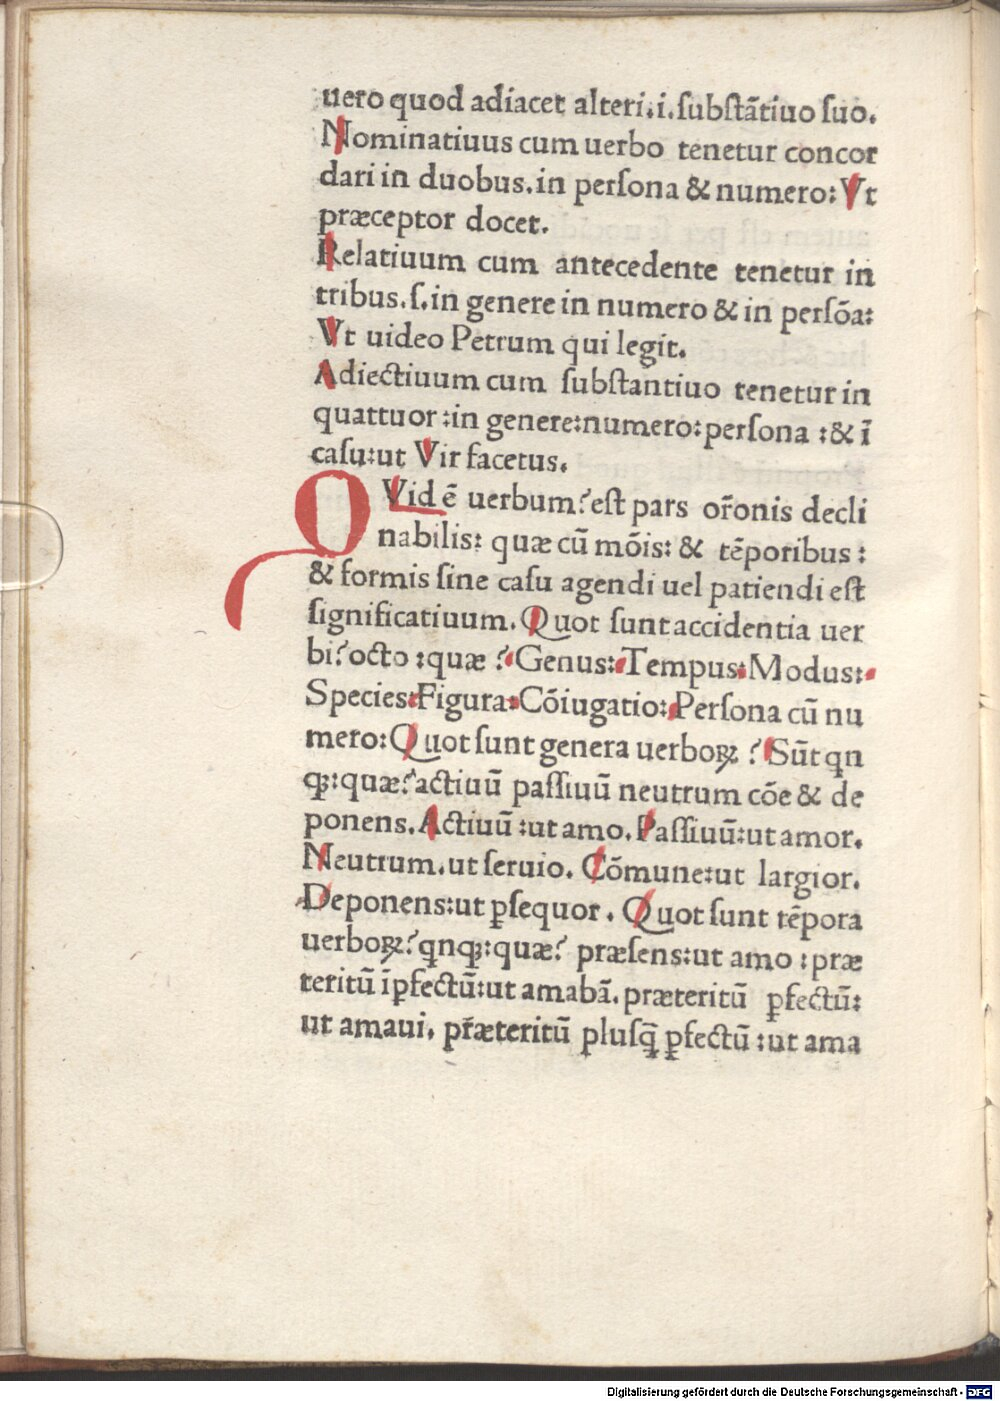 uero quod adiacet alteri.i.ſubſtãtiuo ſuo.
Nominatiuus cum uerbo tenetur concor
dari in duobus.in perſona & numero: Vt
præceptor docet.
Relatiuum cum antecedente tenetur in
tribus.ſ.in genere in numero & in perſõa:
Vt uideo Petrum qui legit.
Adiectiuum cum ſubſtantiuo tenetur in
quattuor:in genere:numero:perſona :& ĩ
caſu:ut Vir facetus.
QVid ẽ uerbum?eſt pars or̃onis decli
nabilis: quæ cũ mõis: & tẽporibus :
& formis ſine caſu agendi uel patiendi eſt
ſignificatiuum. Quot ſunt accidentia uer
bi?octo :quæ ?Genus:Tempus:Modus:
Species:Figura:Cõiugatio:Perſona cũ nu
mero:Quot ſunt genera uerboꝝ ?Sũt qn
qꝫ:quæ?actiuũ paſſiuũ neutrum cõe & de
ponens.Actiuũ :ut amo.Paſſiuũ:ut amor.
Neutrum.ut ſeruio. Cõmune:ut largior.
Deponens:ut ꝑſequor . Quot ſunt tẽpora
uerboꝝ?qnqꝫ:quæ? præſens:ut amo :præ
teritũ ĩꝑfectũ:ut amabã.præteritũ ꝑfectũ:
ut amaui. pr̃æteritũ pluſq̃ ꝑfectũ :ut ama
Digitalisierung gefördert durch die Deutsche Forschungsgemeinschaft - DFG